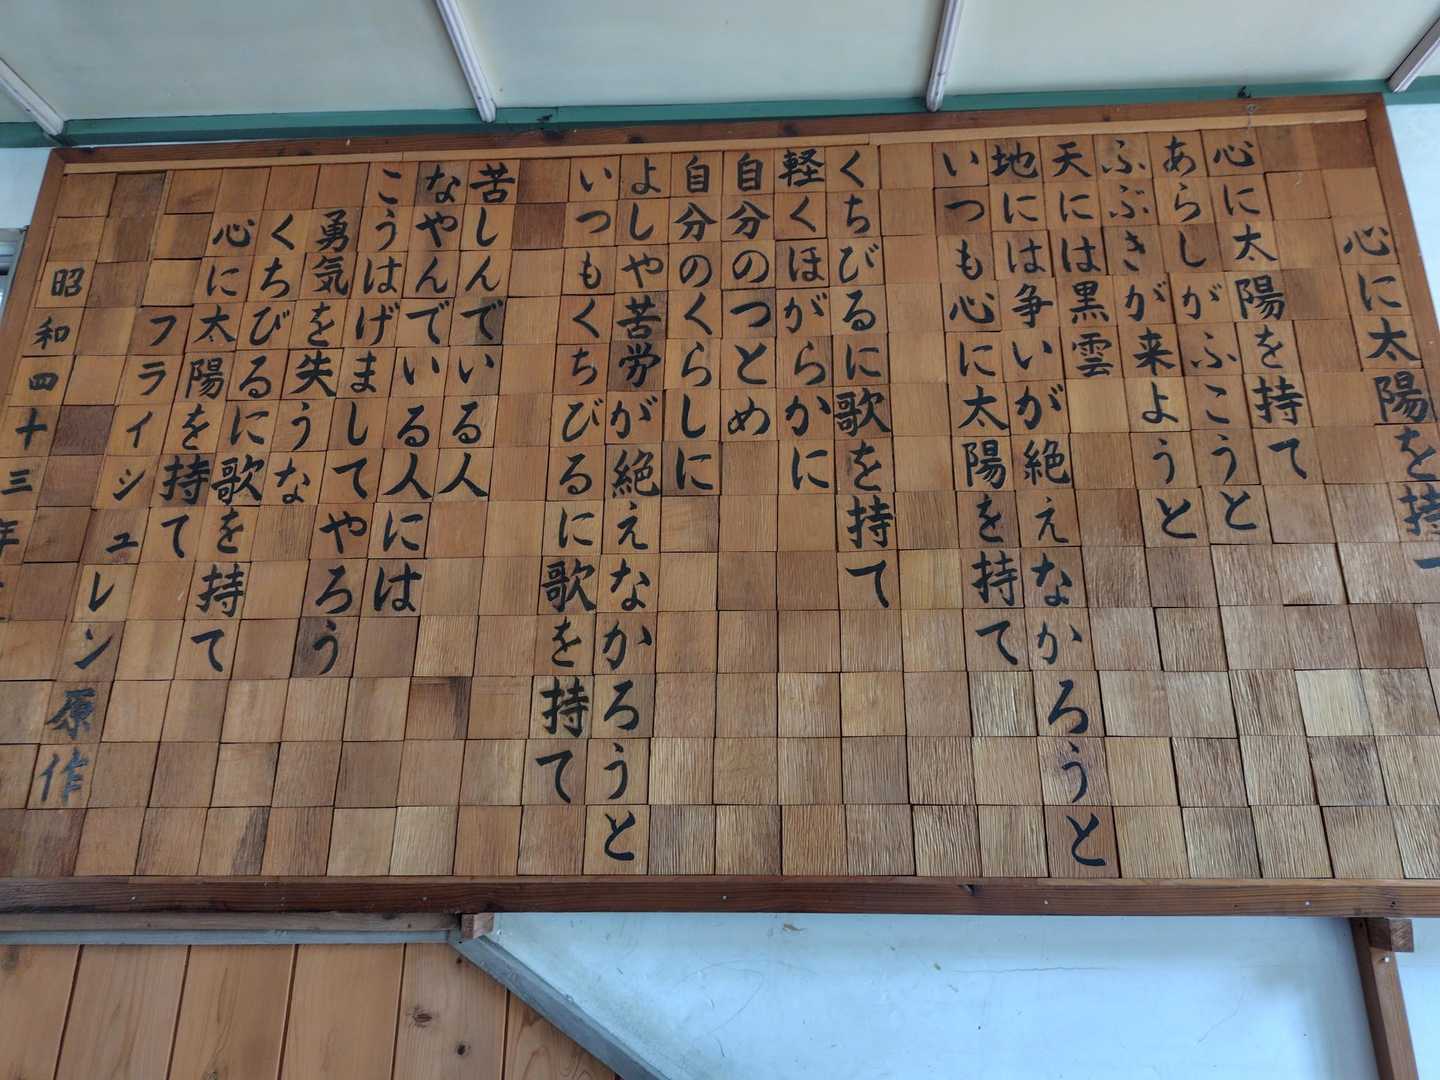 心に太陽を持て
心に太陽を持て
あらしがふこうと
ふぶきが来ようと
天には黒雲
地には争いが絶えなかろうと
いつも心に太陽を持て
くちびるに歌を持て
軽くほがらかに
自分のつとめ
自分のくらしに
よしや苦労が絶えなかろうと
いつもくちびるに歌を持て
苦しんでいる人
なやんでいる人には
こうはげましてやろう
勇気を失うな
くちびるに歌を持て
心に太陽を持て
フライシュレン原作
昭和四十三年